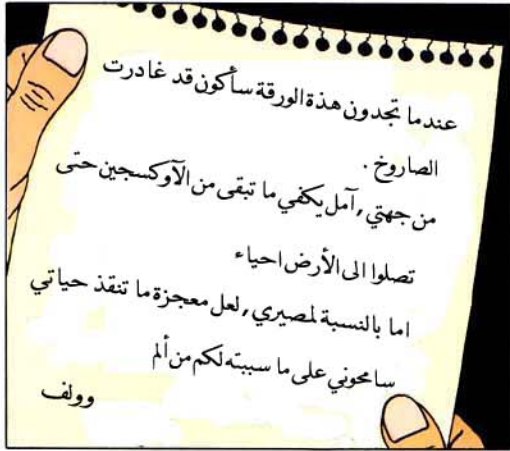 عندما تجدون هذة الورقة سأكون قد غادرت
الصاروخ .
من جهتي , آمل يكفي ما تبقى من الآوكسجين حتى
تصلوا الى الأرض احياء
اما بالنسبة لمصيري , لعل معجزة ما تنقذ حياتي
سامحوني على ما سببته لكم من ألم
وولف